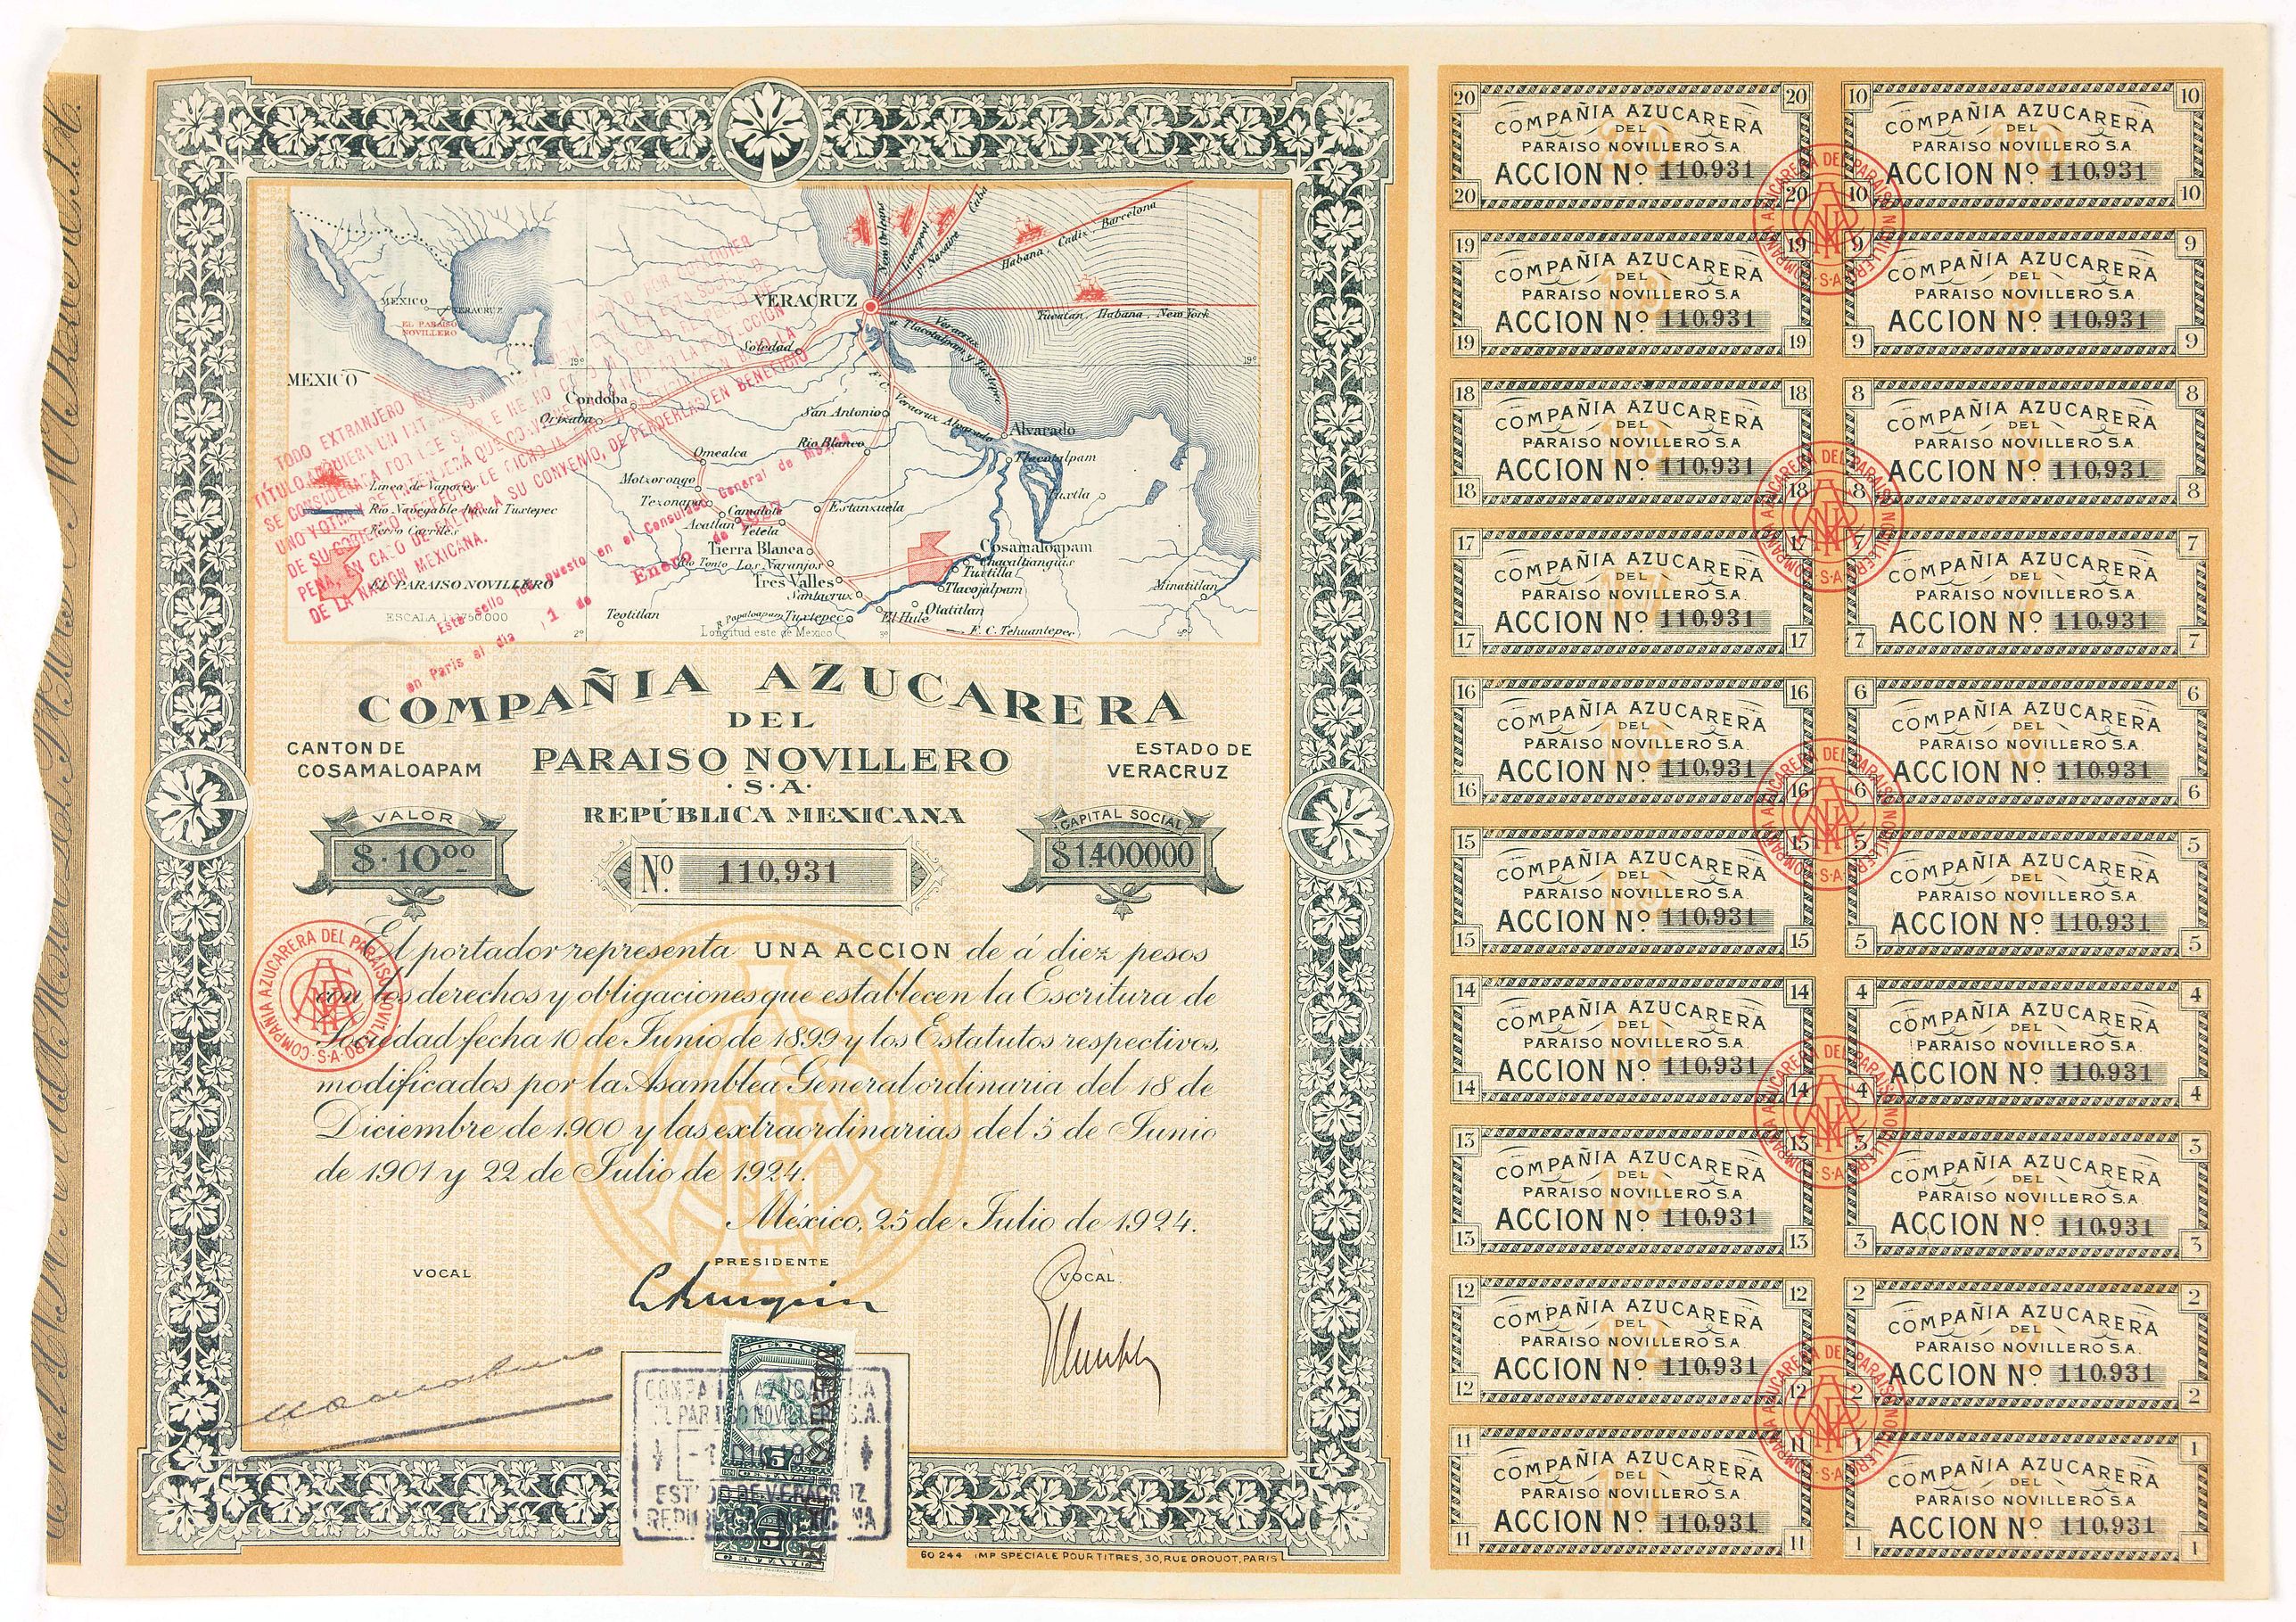 New Orleans
Liverpool
St Nazaire
Cuba
Habana, Cadix, Barcelona
Yucatan, Habana, New York
VERACRUZ
Veracruz
a Tlacotalpam y Tuxtepec
MEXICO
VERACRUZ
EL PARAISO
NOVILLERO
19º
19º
MEXICO
Soledad
Cordoba
Orizaba
San Antonio
F.C.
Veracruz Alvarado
Alvarado
Rio Blanco
Tlacotalpam
Omealca
Motzorongo
Tezonapa
Tuxtla
Estanzuela
Camalote
Acatlan
Tetela
Tierra Blanca
Cosamaloapam
Rio Tonto
Los Naranjos
Chacaltianguis
Tuxtilla
Tres Valles
Tlacojalpam
Santacruz
Minatitlan
Otatitlan
El Hule
Teotitlan
R. Papaloapam
Tuxtepec
Longitud este de Mexico
F. C. Tehuantepec
2º
3º
4º
Linea de Vapores
Rio Navegable hasta Tuxtepec
Ferro Carriles
EL PARAISO NOVILLERO
TODO EXTRANJERO
TÍTULO
SE CONSIDERARA POR
UNO Y OTRA
DE SU GOBIERNO RESPECTO DE
PENA, EN CASO DE FALTAR A SU CONVENIO, DE PERDERLAS EN BENEFICIO
DE LA NACION MEXICANA.
Este sello fué puesto en el Consulado General de
en Paris el dia 1 de Enero de
COMPAÑIA AZUCARERA
DEL
PARAISO NOVILLERO
·S·A·
REPÚBLICA MEXICANA
CANTON DE
COSAMALOAPAM
ESTADO DE
VERACRUZ
VALOR
$·10⁰⁰
Nº 110,931
CAPITAL SOCIAL
$1400000
COMPAÑIA AZUCARERA DEL PARAISO NOVILLERO·S·A·
El portador representa UNA ACCION de á diez pesos
con los derechos y obligaciones que establecen la Escritura de
Sociedad fecha 10 de Junio de 1899 y los Estatutos respectivos,
modificados por la Asamblea General ordinaria del 18 de
Diciembre de 1900 y las extraordinarias del 5 de Junio
de 1901 y 22 de Julio de 1924.
México, 25 de Julio de 1924.
VOCAL
PRESIDENTE
VOCAL
COMPAÑIA AZUCARERA
EL PARAISO NOVILLERO S.A.
ESTADO DE VERACRUZ
REPUBLICA MEXICANA
60244 IMP SPECIALE POUR TITRES, 30, RUE DROUOT, PARIS
20 20
COMPAÑIA AZUCARERA
DEL
PARAISO NOVILLERO S.A
ACCION Nº 110,931
20 20
10 10
COMPAÑIA AZUCARERA
DEL
PARAISO NOVILLERO S.A
ACCION Nº 110,931
10 10
19 19
COMPAÑIA AZUCARERA
DEL
PARAISO NOVILLERO S.A
ACCION Nº 110,931
19 19
9 9
COMPAÑIA AZUCARERA
DEL
PARAISO NOVILLERO S.A
ACCION Nº 110,931
9 9
18 18
COMPAÑIA AZUCARERA
DEL
PARAISO NOVILLERO S.A
ACCION Nº 110,931
18 18
8 8
COMPAÑIA AZUCARERA
DEL
PARAISO NOVILLERO S.A
ACCION Nº 110,931
8 8
17 17
COMPAÑIA AZUCARERA
DEL
PARAISO NOVILLERO S.A
ACCION Nº 110,931
17 17
7 7
COMPAÑIA AZUCARERA
DEL
PARAISO NOVILLERO S.A
ACCION Nº 110,931
7 7
16 16
COMPAÑIA AZUCARERA
DEL
PARAISO NOVILLERO S.A
ACCION Nº 110,931
16 16
6 6
COMPAÑIA AZUCARERA
DEL
PARAISO NOVILLERO S.A
ACCION Nº 110,931
6 6
15 15
COMPAÑIA AZUCARERA
DEL
PARAISO NOVILLERO S.A
ACCION Nº 110,931
15 15
5 5
COMPAÑIA AZUCARERA
DEL
PARAISO NOVILLERO S.A
ACCION Nº 110,931
5 5
14 14
COMPAÑIA AZUCARERA
DEL
PARAISO NOVILLERO S.A
ACCION Nº 110,931
14 14
4 4
COMPAÑIA AZUCARERA
DEL
PARAISO NOVILLERO S.A
ACCION Nº 110,931
4 4
13 13
COMPAÑIA AZUCARERA
DEL
PARAISO NOVILLERO S.A
ACCION Nº 110,931
13 13
3 3
COMPAÑIA AZUCARERA
DEL
PARAISO NOVILLERO S.A
ACCION Nº 110,931
3 3
12 12
COMPAÑIA AZUCARERA
DEL
PARAISO NOVILLERO S.A
ACCION Nº 110,931
12 12
2 2
COMPAÑIA AZUCARERA
DEL
PARAISO NOVILLERO S.A
ACCION Nº 110,931
2 2
11 11
COMPAÑIA AZUCARERA
DEL
PARAISO NOVILLERO S.A
ACCION Nº 110,931
11 11
1 1
COMPAÑIA AZUCARERA
DEL
PARAISO NOVILLERO S.A
ACCION Nº 110,931
1 1